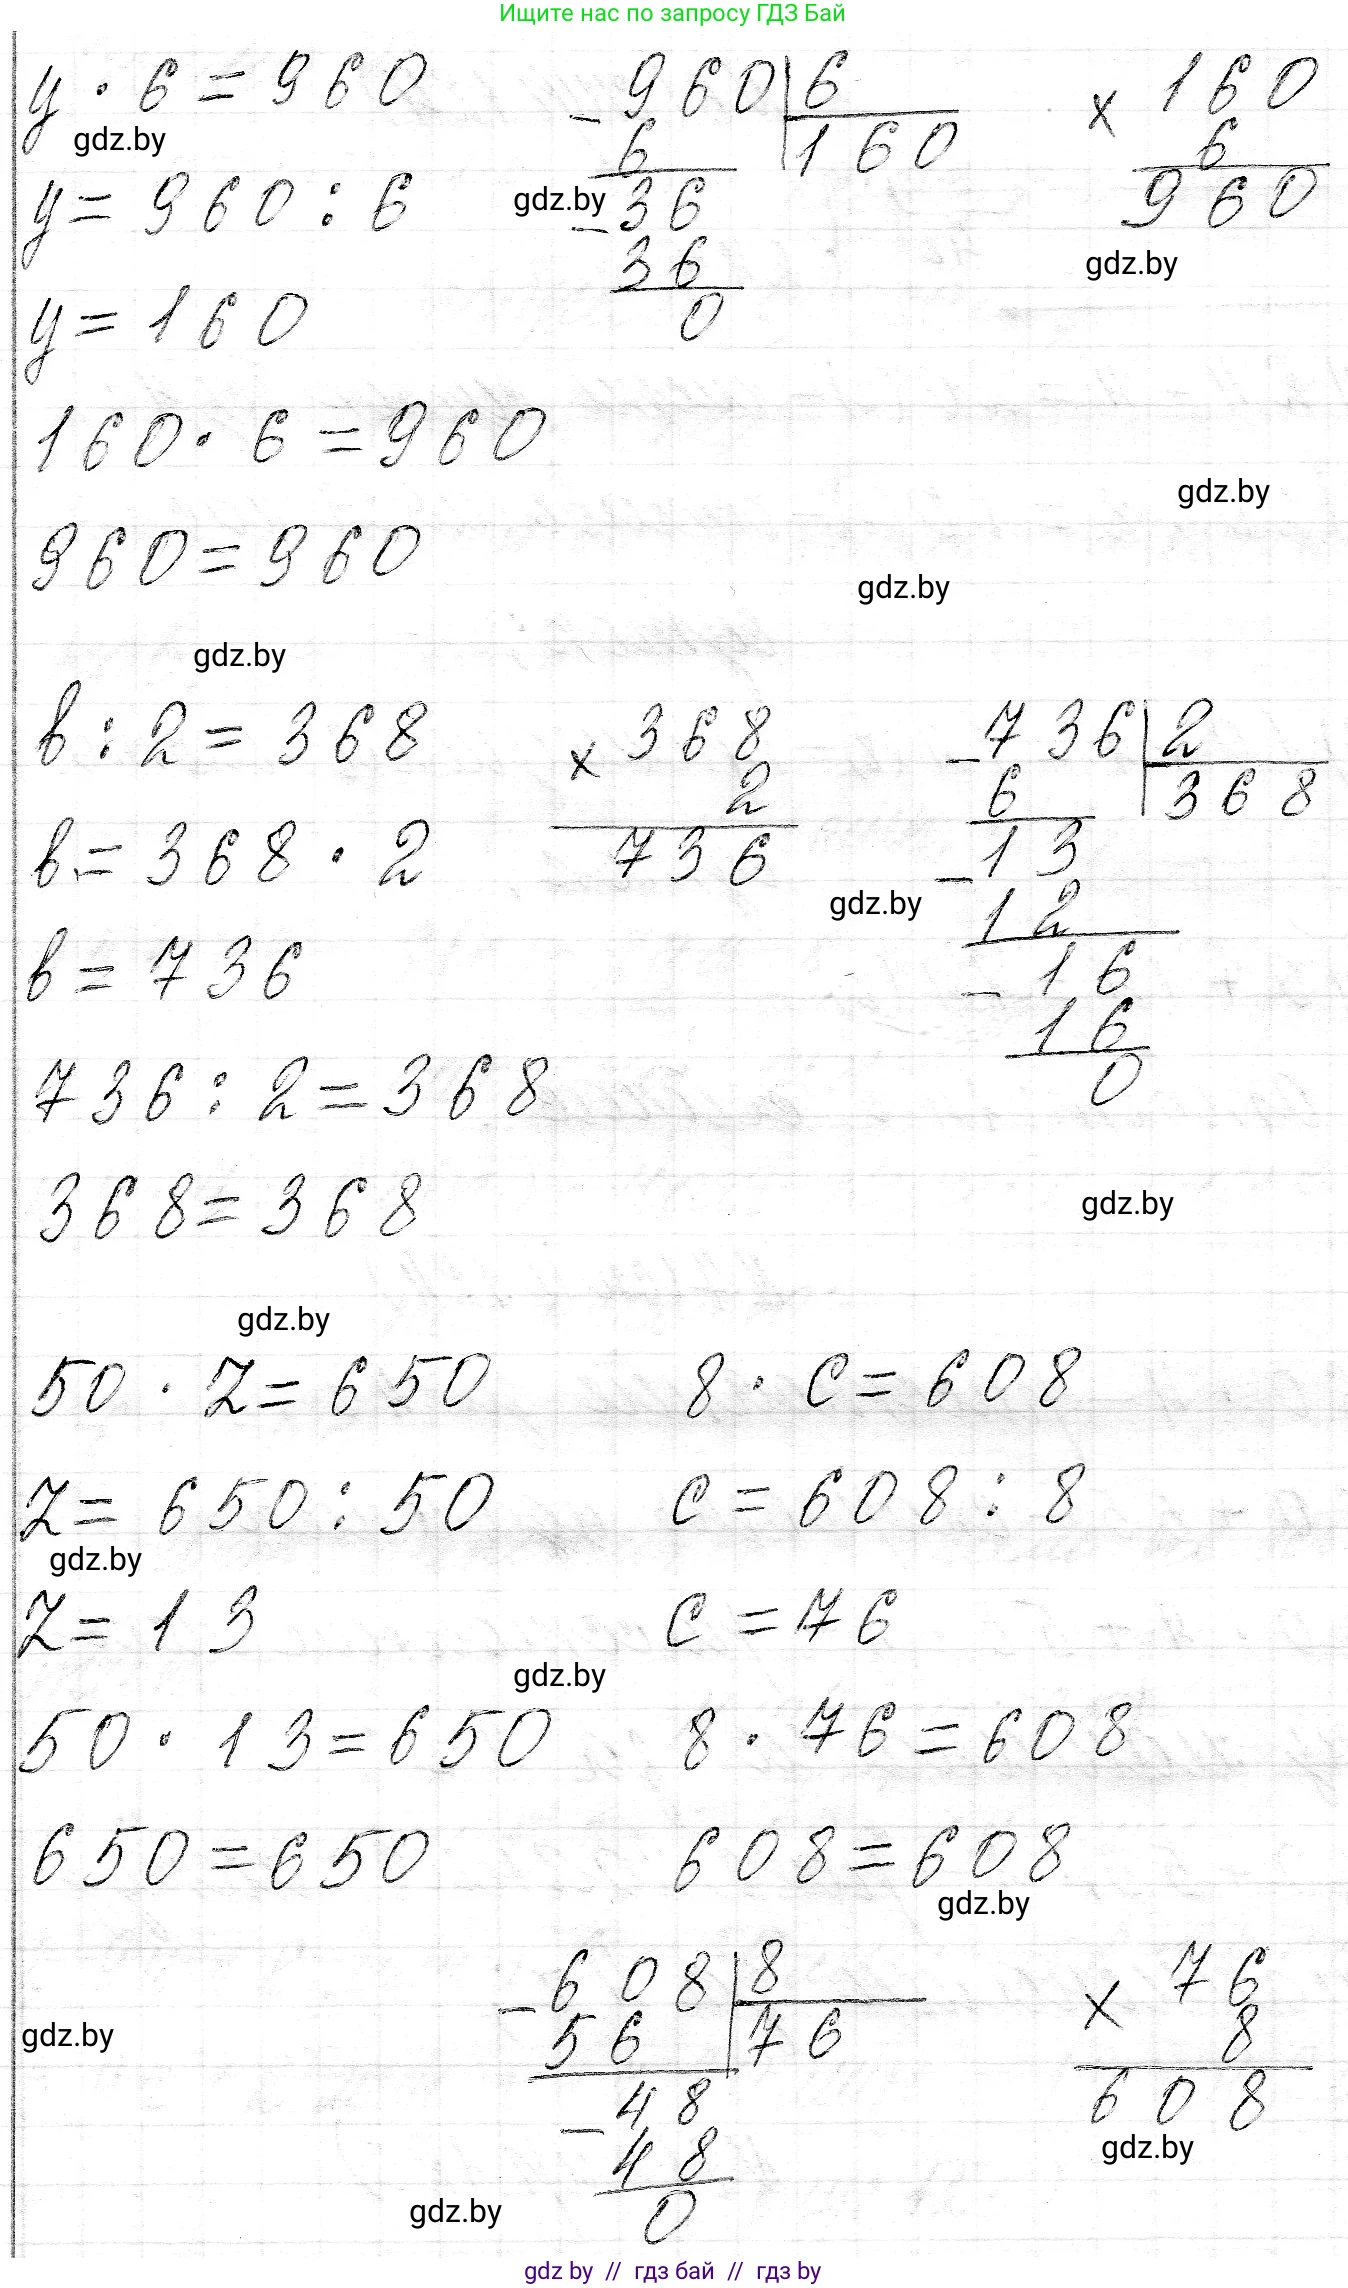 Ищите нас по запросу ГДЗ Бай
y · 6 = 960
gdz.by
y = 960 : 6
y = 160
160 · 6 = 960
960 = 960
- 960 | 6
6 160
gdz.by
- 36
36
0
× 160
6
960
gdz.by
gdz.by
gdz.by
gdz.by
b : 2 = 368
b = 368 · 2
b = 736
736 : 2 = 368
368 = 368
× 368
2
736
gdz.by
- 736 | 2
6 368
- 13
12
- 16
16
0
gdz.by
gdz.by
50 · z = 650
z = 650 : 50
gdz.by
z = 13
gdz.by
50 · 13 = 650
650 = 650
8 · c = 608
c = 608 : 8
c = 76
8 · 76 = 608
608 = 608
gdz.by
gdz.by
- 608 | 8
56 76
- 48
48
0
gdz.by
× 76
8
608
gdz.by
gdz by // гдз бай // gdz by